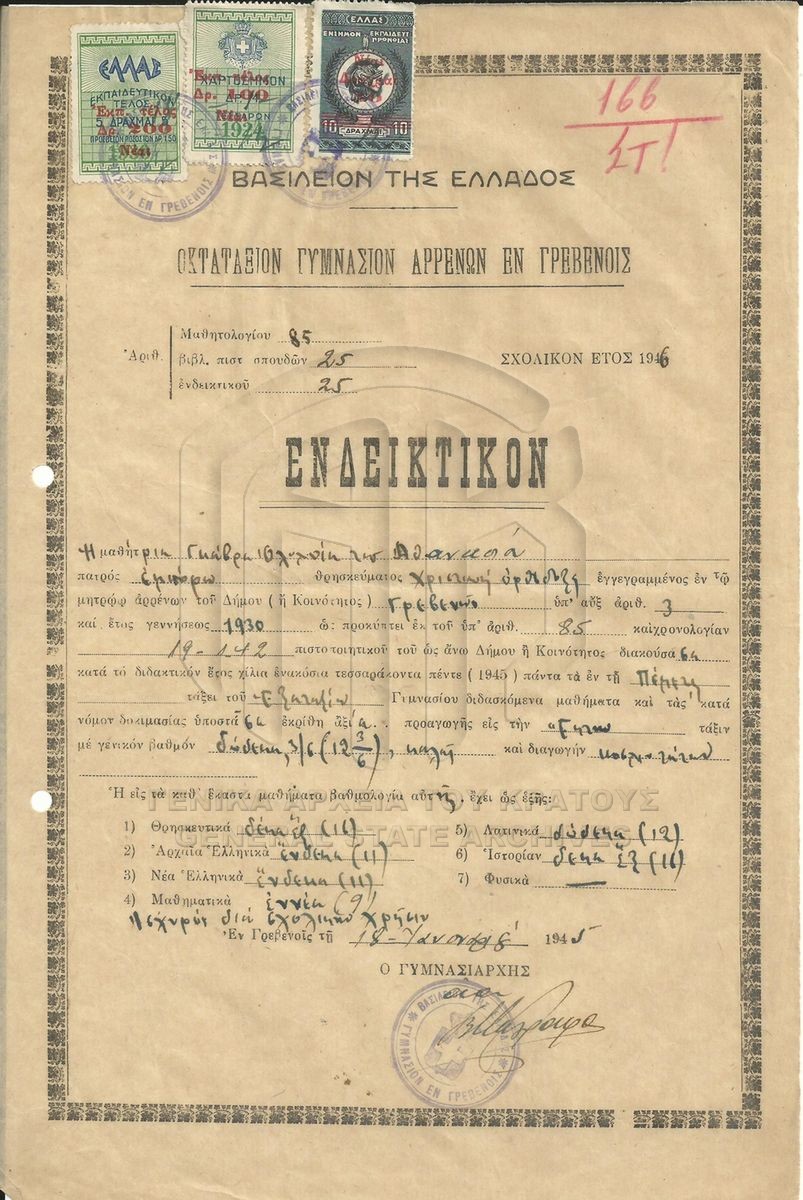 ΕΛΛΑΣ
ΕΚΠΑΙΔΕΥΤΙΚΟΝ
ΤΕΛΟΣ
5 ΔΡΑΧΜΑΙ 5
Ἐκπ. τέλος
Δρ. 200
Νέαι
ΧΑΡΤΟΣΗΜΟΝ
Δρ. 100
Νέαι
1924
ΕΛΛΑΣ
ΕΝΣΗΜΟΝ ΕΚΠΑΙΔΕΥΤ
ΠΡΟΝΟΙΑΣ
10 ΔΡΑΧΜΑΙ 10
166
ΣΤ!
ΒΑΣΙΛΕΙΟΝ ΤΗΣ ΕΛΛΑΔΟΣ
ΟΚΤΑΤΑΞΙΟΝ ΓΥΜΝΑΣΙΟΝ ΑΡΡΕΝΩΝ ΕΝ ΓΡΕΒΕΝΟΙΣ
Μαθητολογίου 85
Ἀριθ. βιβλ. πιστ σπουδῶν 25
ΣΧΟΛΙΚΟΝ ΕΤΟΣ 1946
ἐνδεικτικοῦ 25
ΕΝΔΕΙΚΤΙΚΟΝ
Η μαθήτρια Γκάβρα τοῦ Αθανασίου
πατρός ἐμπόρου θρησκεύματος Χριστιανή ὀρθόδοξη ἐγγεγραμμένος ἐν τῷ
μητρώῳ ἀρρένων τοῦ Δήμου ( ἤ Κοινότητος ) Γρεβενῶν ὑπ' αὔξ ἀριθ. 3
καί ἔτος γεννήσεως 1930 ὡς προκύπτει ἐκ τοῦ ὑπ' ἀριθ. 85 καὶ χρονολογίαν
19-1-42 πιστοποιητικοῦ τοῦ ὡς ἄνω Δήμου ἤ Κοινότητος διακούσασα
κατά τό διδακτικόν ἔτος χίλια ἐνακόσια τεσσαράκοντα πέντε ( 1945 ) πάντα τὰ ἐν τῇ Πέμπτῃ
τάξει τοῦ Ὀκταταξίου Γυμνασίου διδασκόμενα μαθήματα καὶ τὰς κατά
νόμον δοκιμασίας ὑποστᾶσα ἐκρίθη ἀξία προαγωγῆς εἰς τὴν Ἕκτην τάξιν
μέ γενικόν βαθμόν δώδεκα 3/6 (12 3/6), καλῶς καί διαγωγήν κοσμιωτάτην
Ἡ εἰς τὰ καθ' ἕκαστα μαθήματα βαθμολογία αὐτῆς ἔχει ὡς ἑξῆς:
ΓΕΝΙΚΑ ΑΡΧΕΙΑ ΤΟΥ ΚΡΑΤΟΥΣ
GENERAL STATE ARCHIVES
1) Θρησκευτικά δέκα ἕξ (16)
2) Ἀρχαῖα Ἑλληνικά ἕνδεκα (11)
3) Νέα Ἑλληνικά ἕνδεκα (11)
4) Μαθηματικά ἐννέα (9)
5) Λατινικά δώδεκα (12)
6) Ἱστορίαν δέκα ἕξ (16)
7) Φυσικά —
Ισχυρόν διά σχολικήν χρῆσιν
Ἐν Γρεβενοῖς τῇ 18 - Ἰανουαρίου 1945
Ο ΓΥΜΝΑΣΙΑΡΧΗΣ
ΓΥΜΝΑΣΙΟΝ ΕΝ ΓΡΕΒΕΝΟΙΣ